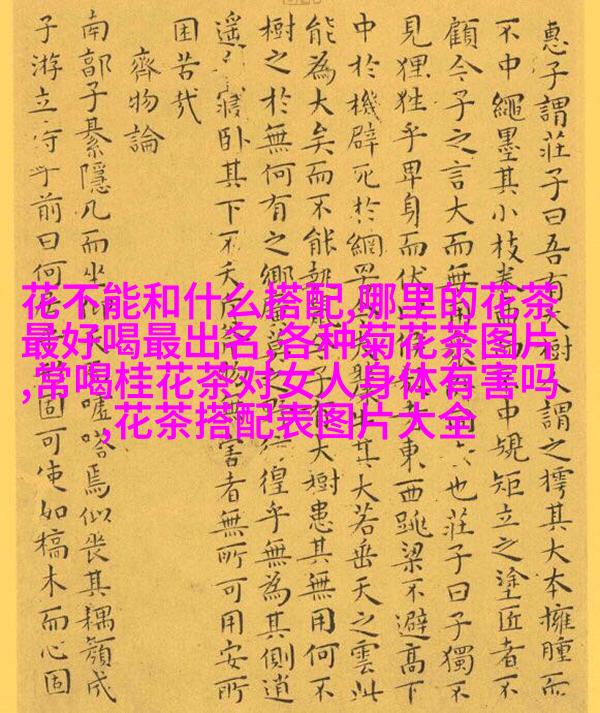 惠子謂莊子曰吾有大樹人謂之樗其大本擁腫而
不中繩墨其小枝卷曲而不中規矩立之塗匠者不
顧今子之言大而無用也莊子曰子獨不
見狸狌乎卑身而伏以候東西跳梁不避高下
中於機辟死於網罟其大若垂天之雲此
能為大矣而不能執鼠今子有大樹患其無用何不
樹之於無何有之鄉廣莫之徨乎無為其側逍
遙寢卧其下不夭斤物無害者無所可用安所
困苦哉
齊物論
南郭子綦隱几而坐仰天噓嗒焉似喪其耦顏成
子游立侍乎前曰何居固可使如槁木而心固
花不能和什么搭配,哪里的花茶
最好喝最出名,各种菊花茶图片
,常喝桂花茶对女人身体有害吗
,花茶搭配表图片大全